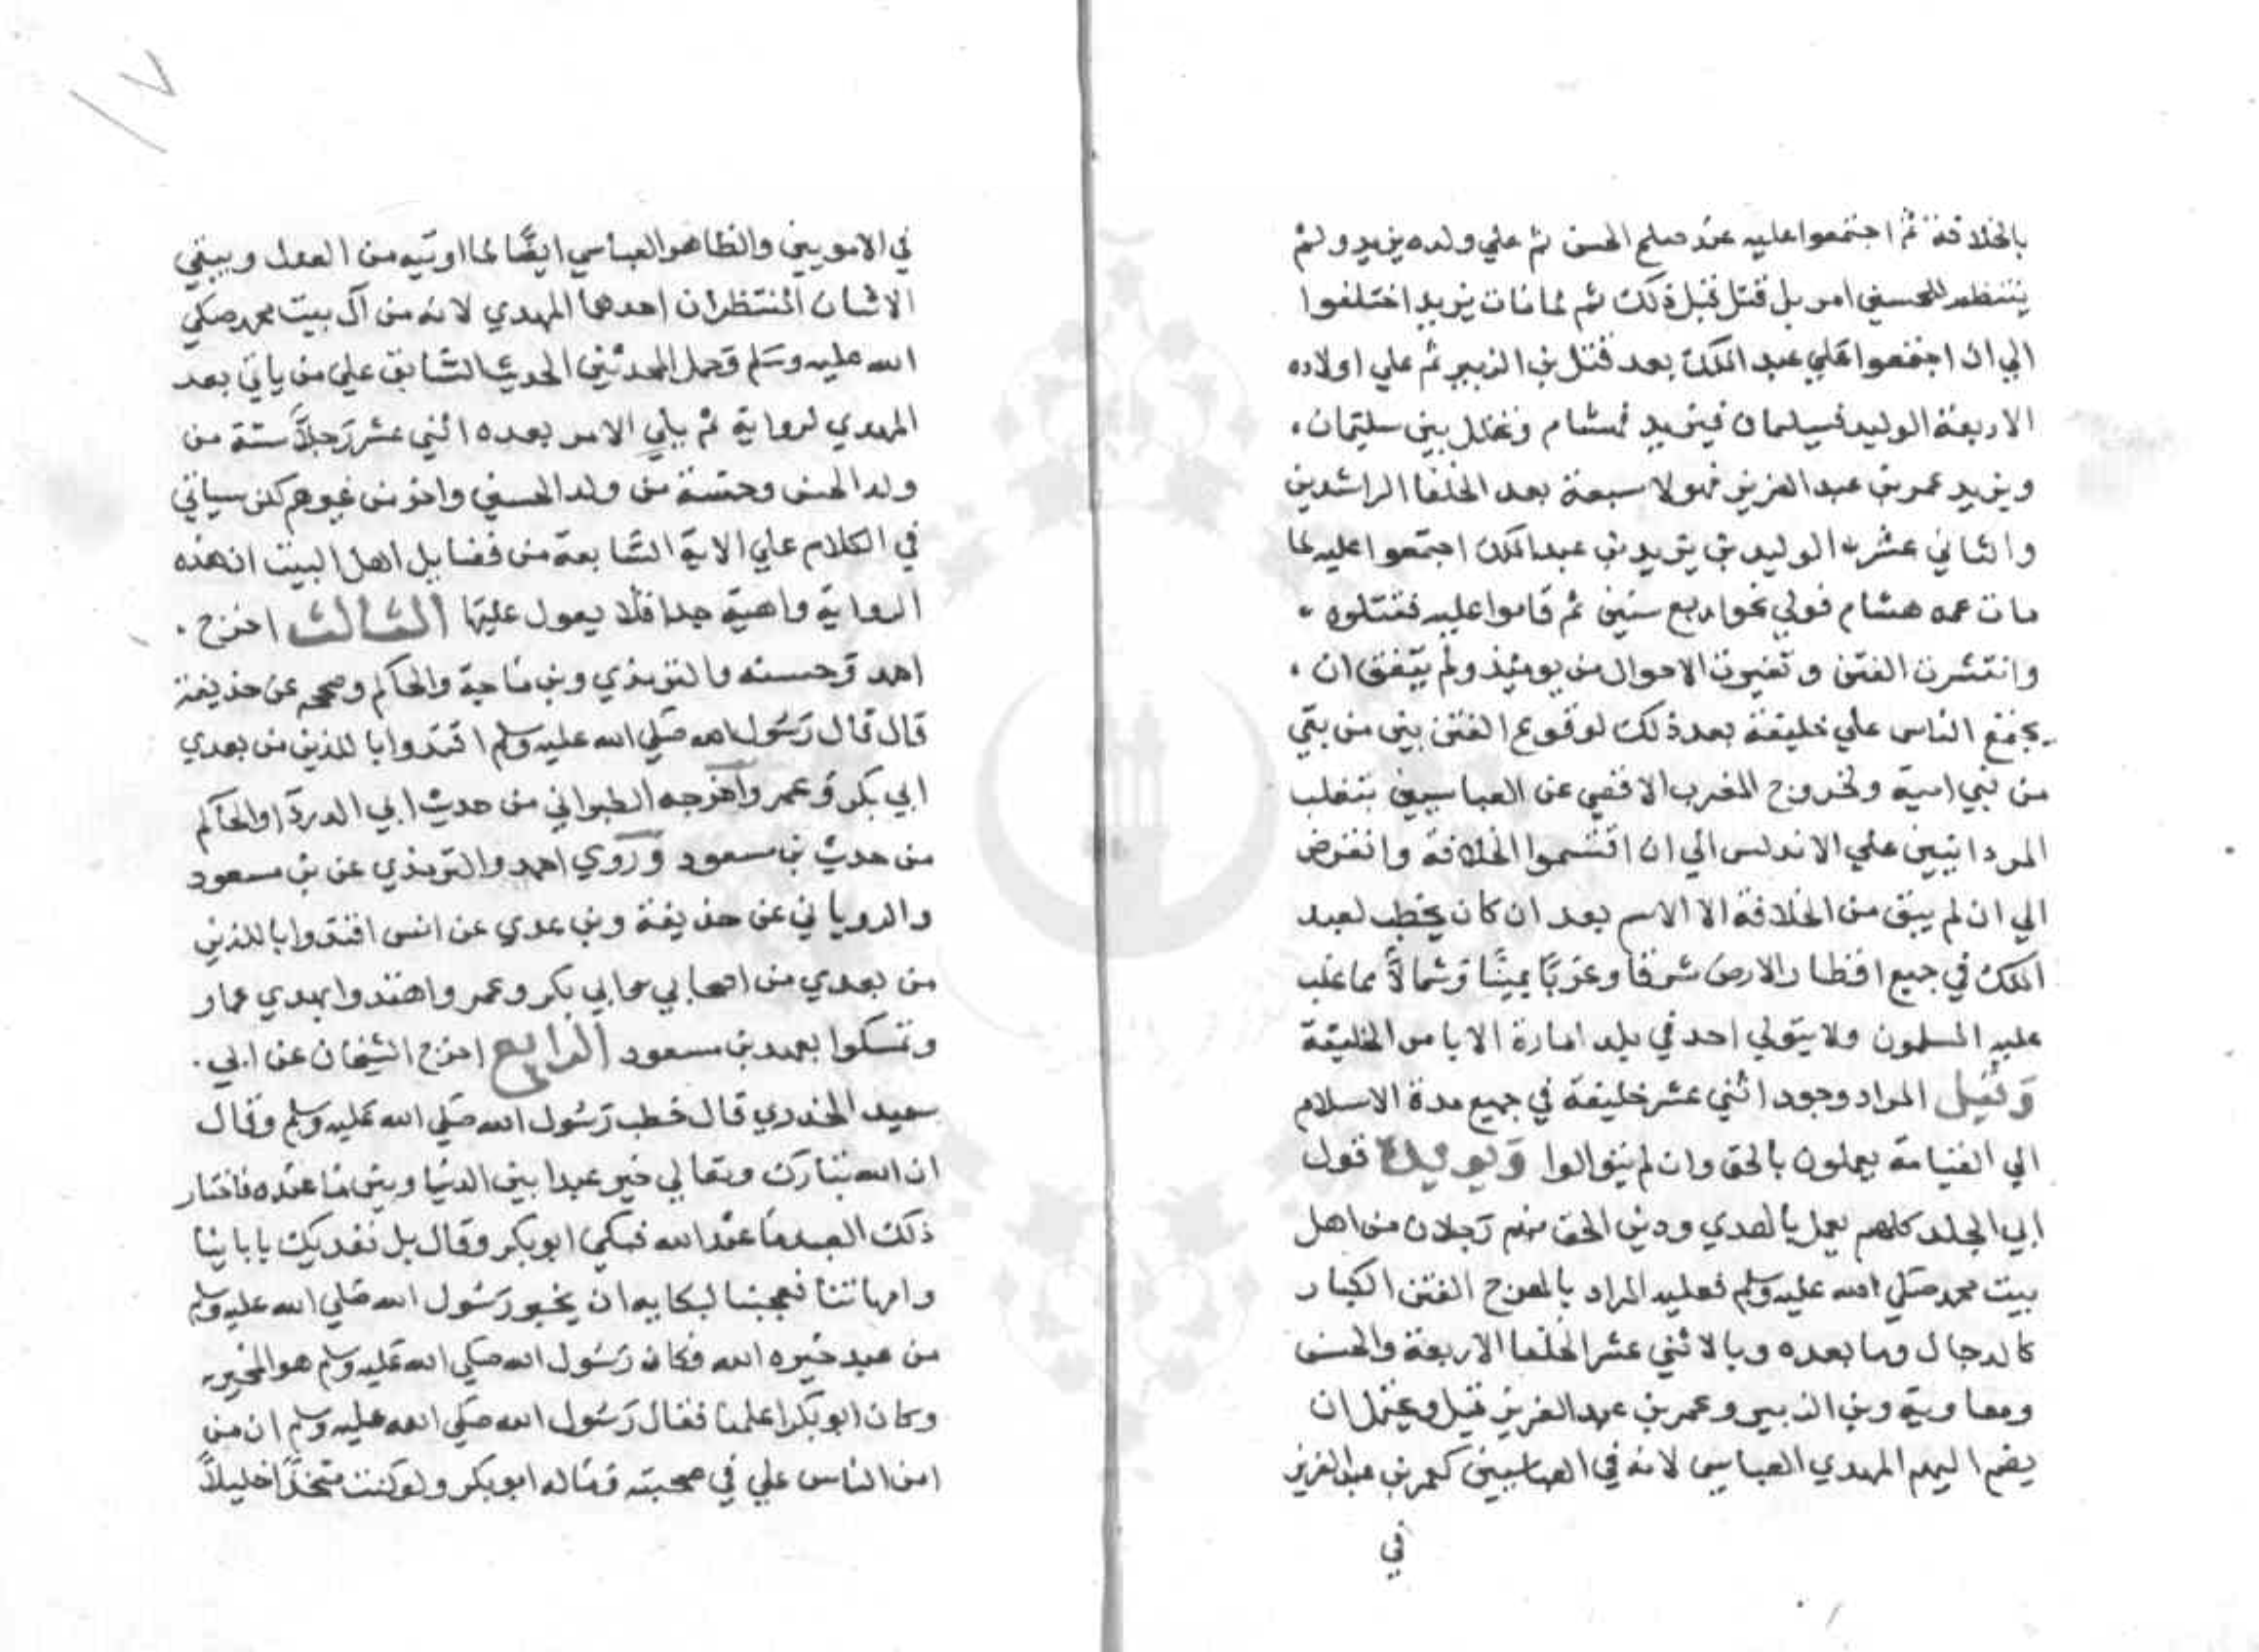 بالخلافة ثم اجتمعوا عليه عند صلح الحسن ثم علي ولده يزيد ولم
ينتظم للحسين امر بل قتل قبل ذلك ثم لما مات يزيد اختلفوا
الي ان اجتمعوا علي عبد الملك بعد قتل بن الزبير ثم علي اولاده
الاربعة الوليد فسيلمان فيزيد فهشام وتخلل بين سليمان
ويزيد عمر بن عبد العزيز فهولا سبعة بعد الخلفا الراشدين
والثاني عشر الوليد بن يزيد بن عبد الملك اجتمعوا عليه لما
مات عمه هشام فولي نحو اربع سنين ثم قاموا عليه فقتلوه
وانتشرت الفتن وتغيرت الاحوال من يوميذ ولم يتفق ان
يجتمع الناس علي خليفة بعد ذلك لوقوع الفتن بين من بقي
من بني امية ولخروج المغرب الاقصي عن العباسيين بتغلب
المروانيين علي الاندلس الي ان اقتسموا الخلافة وانقرض
الي ان لم يبق من الخلافة الا الاسم بعد ان كان يخطب لعبد
الملك في جميع اقطار الارض شرقا وغربًا يمينًا وشمالاً مما غلب
عليه المسلمون ولا يتولي احد في بلد امارة الا بامر الخليفة
وقيل المراد وجود اثني عشر خليفة في جميع مدة الاسلام
الي القيامة يعملون بالحق وان لم يتوالوا ويويده قول
ابي الجلد كلهم يعمل بالهدي ودين الحق منهم رجلان من اهل
بيت محمد صلي الله عليه وسلم فعليه المراد بالهرج الفتن الكبار
كالدجال وما بعده وبالاثني عشر الخلفا الاربعة والحسن
ومعاوية وبن الزبير وعمر بن عبد العزيز قيل ويحتمل ان
يضم اليهم المهدي العباسي لانه في العباسيين كعمر بن عبد العزيز
في
١٧
في الامويين والظاهر العباسي ايضًا لما اوتيه من العدل ويبقي
الاثنان المنتظران احدهما المهدي لانه من آل بيت محمد صلي
الله عليه وسلم وحمل المحدثين الحديث السابق علي من ياتي بعد
المهدي لرواية ثم يلي الامر بعده اثني عشر رجلاً ستة من
ولد الحسن وخمسة من ولد الحسين واخر من غيرهم لكن سياتي
في الكلام علي الاية السابعة من فضايل اهل البيت ان هذه
الرواية واهية جدا فلا يعول عليها الثالث اخرج
احمد وحسنه والترمذي وبن ماجة والحاكم وصححه عن حذيفة
قال قال رسول الله صلي الله عليه وسلم اقتدوا بالذين من بعدي
ابي بكر وعمر واخرجه الطبراني من حديث ابي الدردا والحاكم
من حديث بن مسعود وروي احمد والترمذي عن بن مسعود
والروياني عن حذيفة وبن عدي عن انس اقتدوا بالذين
من بعدي من اصحابي ابي بكر وعمر واهتدوا بهدي عمار
وتمسكوا بعهد بن مسعود الرابع اخرج الشيخان عن ابي
سعيد الخدري قال خطب رسول الله صلي الله عليه وسلم وقال
ان الله تبارك وتعالي خير عبدا بين الدنيا وبين ما عنده فاختار
ذلك العبد ما عند الله فبكي ابو بكر وقال بل نفديك بابائنا
وامهاتنا فعجبنا لبكايه ان يخبر رسول الله صلي الله عليه وسلم
من عبد خيره الله فكان رسول الله صلي الله عليه وسلم هو المخير
وكان ابو بكر اعلمنا فقال رسول الله صلي الله عليه وسلم ان من
امن الناس علي في صحبته وماله ابو بكر ولو كنت متخذًا خليلاً